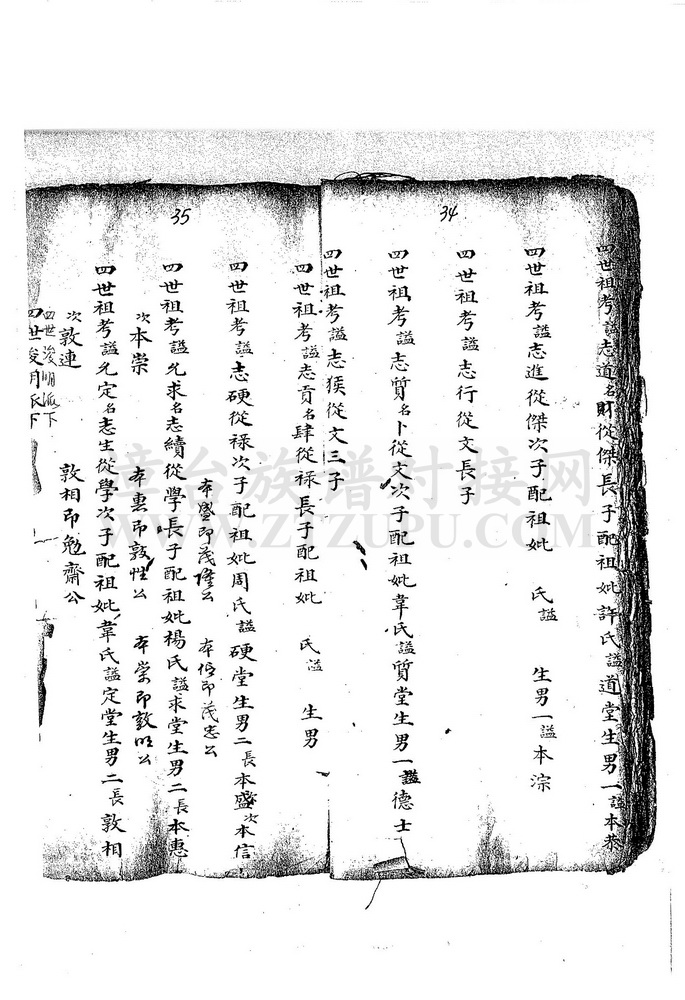 34
四世祖考謚志道名財從傑長子配祖妣許氏謚道堂生男一謚本恭
四世祖考謚志進從傑次子配祖妣 氏謚 生男一謚本淙
四世祖考謚志行從文長子
四世祖考謚志質名卜從文次子配祖妣韋氏謚質堂生男一謚德士
四世祖考謚志猴從文三子
35
四世祖考謚志貢名肆從祿長子配祖妣 氏謚 生男
四世祖考謚志硬從祿次子配祖妣周氏謚硬堂生男二長本盛次本信
本盛即茂隆公 本信即茂忠公
四世祖考謚允求名志續從學長子配祖妣楊氏謚求堂生男二長本惠
次本崇 本惠即敦性公 本崇即敦明公
四世祖考謚允定名志生從學次子配祖妣韋氏謚定堂生男二長敦相
次敦連 敦相即勉齋公
四世浚明派下
四世 派下
漳台族谱对接网
WWW.ZTZUPU.COM